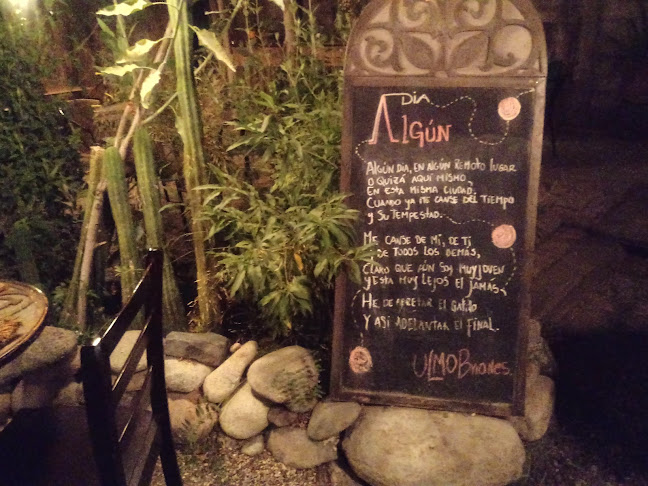 Algún
Día
Algún día, en algún remoto lugar
o quizá aquí mismo,
en esta misma ciudad,
cuando ya me canse del tiempo
y su tempestad.
Me canse de mí, de ti
y de todos los demás,
claro que aún soy muy joven
y esta muy lejos el jamás,
he de apretar el gatillo
y así adelantar el final.